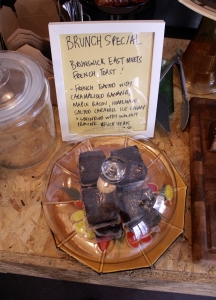 BRUNCH SPECIAL
BRUNSWICK EAST MEETS
FRENCH TOAST!
- FRENCH TOAST WITH
CARAMALISED BANANA,
MAPLE BACON, HOMEMADE
SALTED CARAMEL ICE CREAM
& SPRINKLED WITH WALNUT
PRALINE